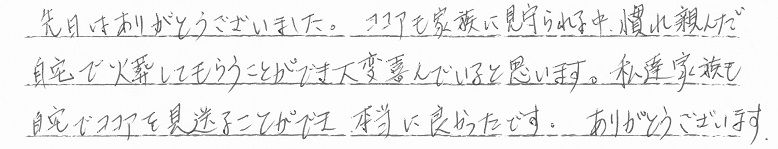 先日はありがとうございました。ココアも家族に見守られる中、慣れ親んだ
自宅で火葬してもらうことができ大変喜んでいると思います。私達家族も
自宅でココアを見送ることができ 本当に良かったです。 ありがとうございます.